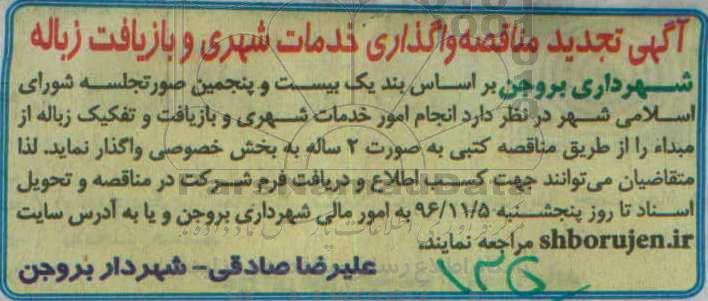 آگهی تجدید مناقصه واگذاری خدمات شهری و بازیافت زباله
شهرداری بروجن بر اساس بند یک بیست و پنجمین صورتجلسه شورای
اسلامی شهر در نظر دارد انجام امور خدمات شهری و بازیافت و تفکیک زباله از
مبداء را از طریق مناقصه کتبی به صورت ۲ ساله به بخش خصوصی واگذار نماید. لذا
متقاضیان می‌توانند جهت کسب اطلاع و دریافت فرم شرکت در مناقصه و تحویل
اسناد تا روز پنجشنبه ۹۶/۱۱/۵ به امور مالی شهرداری بروجن و یا به آدرس سایت
shborujen.ir مراجعه نمایند.
علیرضا صادقی- شهردار بروجن